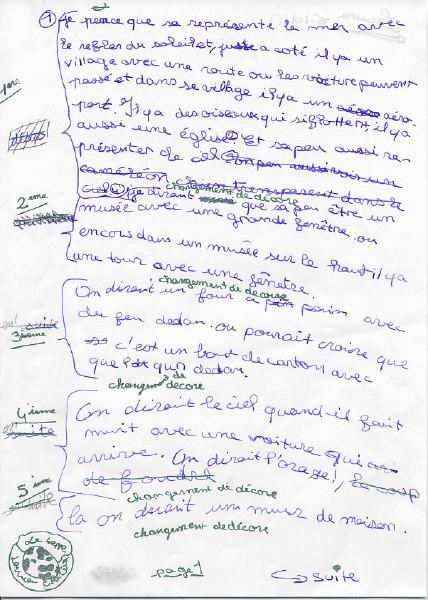 ① Je pence que sa représente la mer avec
le refler du soleil et, juste a coté il ya un
village avec une route ou les voiture peuvent
passé et dans se village il ya un aéro-
port. Il ya des oiseaux qui sifflottent, il ya
aussi une église. Et sa peu aussi re-
présenter de ciel
1ere
changement de décore
2eme
je dirait que sa peu être un
musée avec une grande fenêtre. ou
encors dans un musée sur le haut il ya
une tour avec une fenêtre.
changement de décore
3ième
On dirait un four a pain avec
du feu dedan. ou pourait croire que
c'est un bout de carton avec
que dedan.
changement de décore
4ième
suite
On dirait le ciel quand-il fait
nuit avec une voiture qui
arrive. On dirait l'orage!,
de foudre
5ième
changement de décore
la on dirait un mur de maison.
changement de décore
La terre
page 1
→ suite